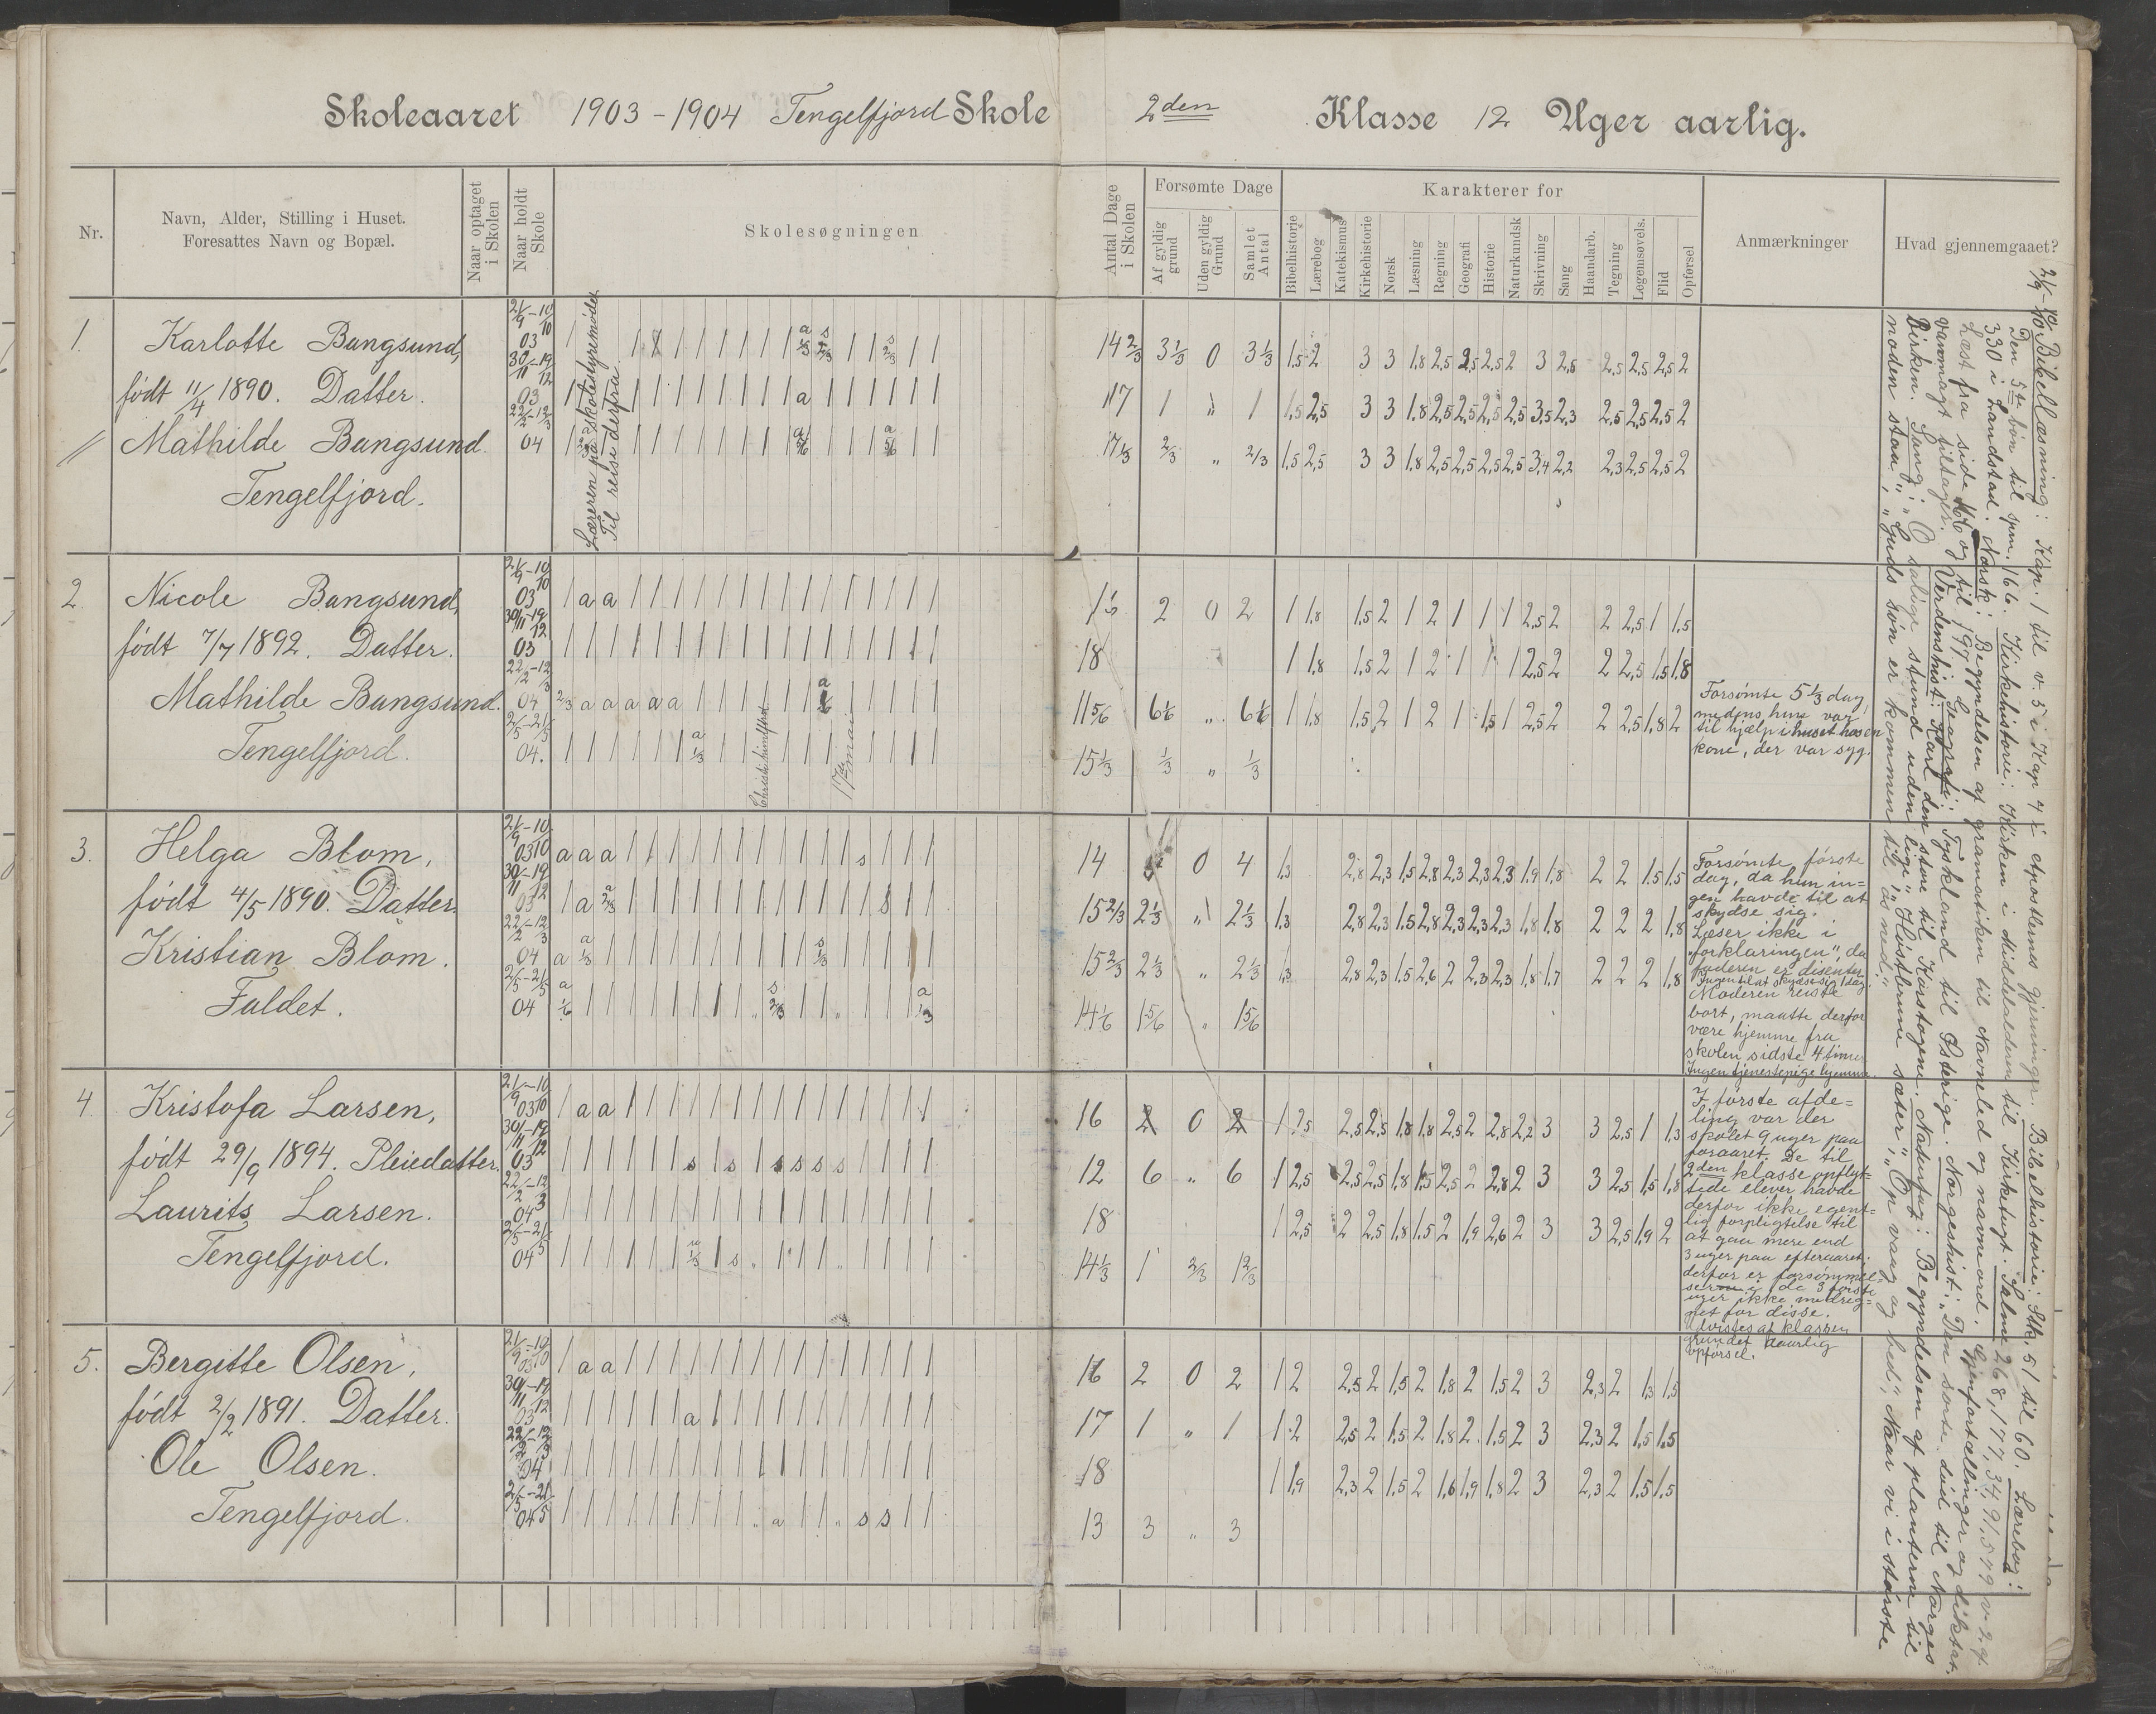 Skoleaaret 1903-1904 Tengelfjord Skole 2den Klasse 12 Uger aarlig.
Nr.
Navn, Alder, Stilling i Huset.
Foresattes Navn og Bopæl.
Naar optaget
i Skolen
Naar holdt
Skole
Skolesøgningen
Antal Dage
i Skolen
Forsømte Dage
Af gyldig
grund
Uden gyldig
Grund
Samlet
Antal
Karakterer for
Bibelhistorie
Lærebog
Katekismus
Kirkehistorie
Norsk
Læsning
Regning
Geografi
Historie
Naturkundsk
Skrivning
Sang
Haandarb.
Tegning
Legemsøvels.
Flid
Opførsel
Anmærkninger
Hvad gjennemgaaet?
1.
Karlotte Bangsund,
født 11/4 1890. Datter.
Mathilde Bangsund.
Tengelfjord.
Læreren på skolestyremøde.
Til reise derfra
14 2/3 3 1/3 0 3 1/3 1,5 2 3 3 1,8 2,5 2,5 2,5 2 3 2,5 2,5 2,5 2,5 2
17 1 " 1 1,5 2,5 3 3 1,8 2,5 2,5 2,5 2,5 3,5 2,3 2,5 2,5 2,5 2
17 1/3 2/3 " 2/3 1,5 2,5 3 3 1,8 2,5 2,5 2,5 2,5 3,4 2,2 2,3 2,5 2,5 2
2.
Nicole Bangsund,
født 7/7 1892. Datter.
Mathilde Bangsund.
Tengelfjord.
Christi himmelfart
17de mai
16 2 0 2 1 1,8 1,5 2 1 2 1 1 1 2,5 2 2 2,5 1 1,5
18 1 1,8 1,5 2 1 2 1 1 1 2,5 2 2 2,5 1,5 1,8
11 5/6 6 1/6 " 6 1/6 1 1,8 1,5 2 1 2 1 1,5 1 2,5 2 2 2,5 1,8 2
15 1/3 1/3 " 1/3
Forsømte 5 1/3 dag,
medens hun var
til hjælp i huset hos en
kone, der var syg.
3.
Helga Blom,
født 4/5 1890. Datter.
Kristian Blom.
Faldet.
14 4 0 4 1,3 2,8 2,3 1,5 2,8 2,3 2,3 2,3 1,9 1,8 2 2 1,5 1,5
15 2/3 2 1/3 " 2 1/3 1,3 2,8 2,3 1,5 2,8 2,3 2,3 2,3 1,8 1,8 2 2 2 1,8
15 2/3 2 1/3 " 2 1/3 1,3 2,8 2,3 1,5 2,6 2 2,3 2,3 1,8 1,7 2 2 2 1,8
14 1/6 1 5/6 " 1 5/6
Forsømte første
dag, da hun in-
gen havde til at
skydse sig.
Læser ikke i
"forklaringen", da
faderen er disenter.
Ingen til at skydse sig 1 dag.
Moderen reiste
bort, maatte derfor
være hjemme fra
skolen sidste 4 timer
Ingen tjenestepige hjemme.
4.
Kristofa Larsen,
født 29/9 1894. Pleiedatter.
Laurits Larsen.
Tengelfjord.
16 2 0 2 1 2,5 2,5 2,5 1,8 1,8 2,5 2 2,8 2,2 3 3 2,5 1 1,3
12 6 " 6 1 2,5 2,5 2,5 1,8 1,5 2,5 2 2,8 2 3 3 2,5 1,5 1,8
18 1 2,5 2 2,5 1,8 1,5 2 1,9 2,6 2 3 3 2,5 1,9 2
14 1/3 1 2/3 1 2/3
I første afde-
ling var der
skolet 9 uger paa
foraaret. De til
2den klasse opflyt-
tede elever havde
derfor ikke egent-
lig forpligtelse til
at gaa mere end
3 uger paa efteraaret;
derfor er forsømmel-
serne i de 3 første
uger ikke medreg-
net for disse.
Udvistes af klassen
grundet daarlig
opførsel.
5.
Bergitte Olsen,
født 2/2 1891. Datter.
Ole Olsen.
Tengelfjord.
16 2 0 2 1 2 2,5 2 1,5 2 1,8 2 1,5 2 3 2,3 2 1,3 1,5
17 1 " 1 1 2 2,5 2 1,5 2 1,8 2 1,5 2 3 2,3 2 1,5 1,5
18 1 1,9 2,3 2 1,5 2 1,6 1,9 1,8 2 3 2,3 2 1,5 1,5
13 3 " 3
Bibellæsning: Kap. 1 til v. 5 i Kap 7 i apostlernes gjerninger. Bibelhistorie: Stk. 51 til 60. Lærebog:
Den 5te bøn til spm. 166. Kirkehistorie: Kirken i middelalderen til Kirketugt. Salme 268, 177, 34, 91, 579 v. 2 af
330 i Landstad. Norsk: Begyndelsen af gramatiken til Navneled og navneord. Gjenfortællinger og diktat.
Læst fra side 166 og til 197. Geografi: Tyskland til Østerige. Norgeshist: "Den sorte død" til Norges
vanmagt tiltager. Verdenshist: Karl den store til Korstogene. Naturfag: Begyndelsen af planterne til
Birken. Sang: "O salige stund uden lige", "Høstlerne sæter", "Op vaag og bed", "Naar vi i største
nøden staa", "Guds søn er kommen til os ned".